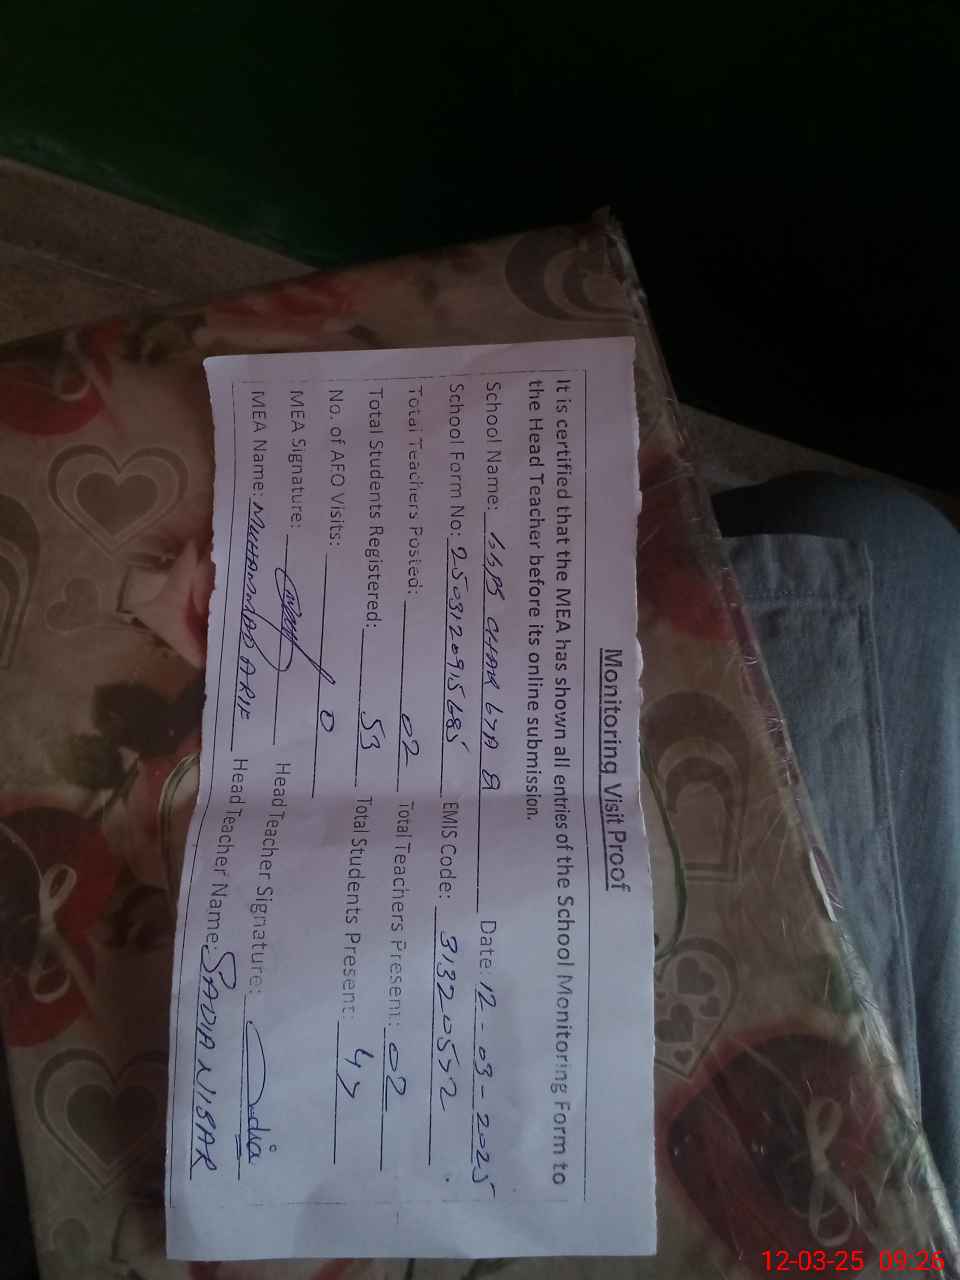 Monitoring Visit Proof
It is certified that the MEA has shown all entries of the School Monitoring Form to
the Head Teacher before its online submission.
School Name: GGPS CHAK 67A Date: 12-03-2025
School Form No: 2503120915685 EMIS Code: 31320552
Total Teachers Posted: 02 Total Teachers Present: 02
Total Students Registered: 53 Total Students Present: 47
No. of AEO Visits: 0
MEA Signature: Head Teacher Signature:
MEA Name: MUHAMMAD ARIF Head Teacher Name: SADIA NISAR
12-03-25 09:26